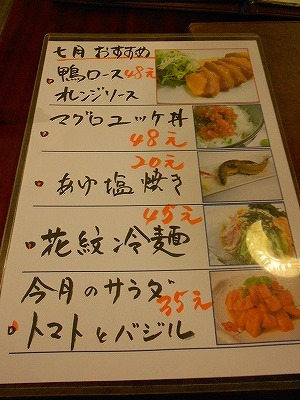 七月 おすすめ
鴨ロース 48元
オレンジソース
マグロユッケ丼
48元
20元
あゆ塩焼き
45元
花紋冷麺
今月のサラダ
35元
トマトとバジル